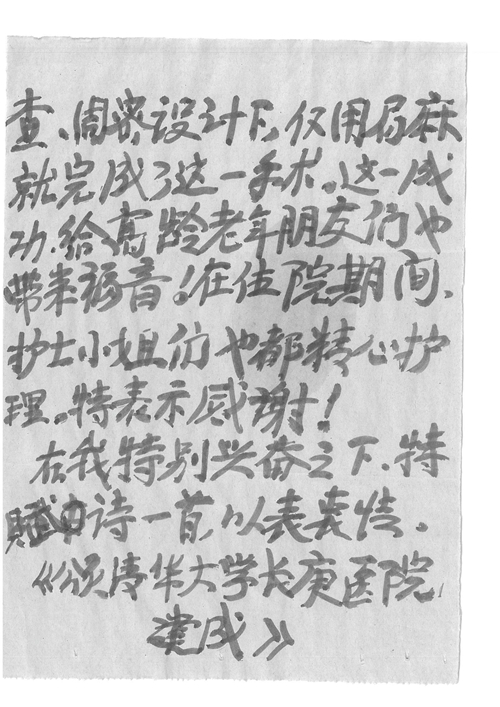 查、周密设计下,仅用局麻
就完成了这一手术。这一成
功.给高龄老年朋友们也
带来福音!在住院期间、
护士小姐们也都精心护
理。特表示感谢!
在我特别兴奋之下、特
赋诗一首,以表衷情。
《颂清华大学长庚医院
建成》